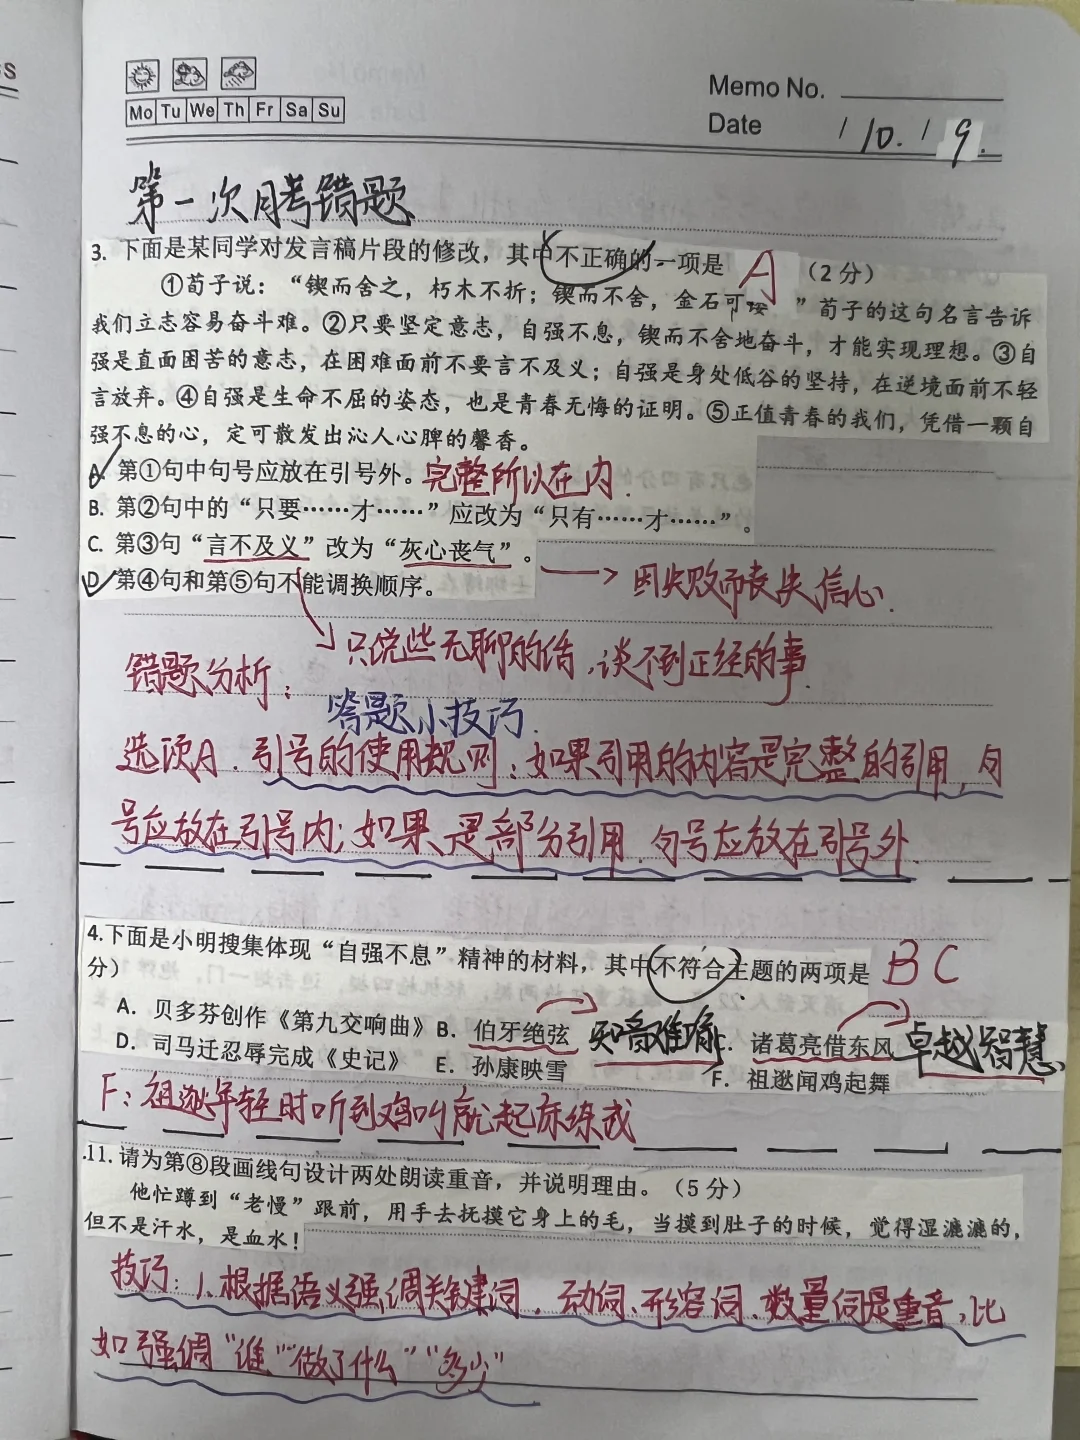 Memo No.
Mo Tu We Th Fr Sa Su
Date / 10. / 9.
第一次月考错题
3. 下面是某同学对发言稿片段的修改，其中不正确的一项是 A （2分）
①荀子说：“锲而舍之，朽木不折；锲而不舍，金石可镂 ”荀子的这句名言告诉
我们立志容易奋斗难。②只要坚定意志，自强不息，锲而不舍地奋斗，才能实现理想。③自
强是直面困苦的意志，在困难面前不要言不及义；自强是身处低谷的坚持，在逆境面前不轻
言放弃。④自强是生命不屈的姿态，也是青春无悔的证明。⑤正值青春的我们，凭借一颗自
强不息的心，定可散发出沁人心脾的馨香。
A. 第①句中句号应放在引号外。完整所以在内.
B. 第②句中的“只要……才……”应改为“只有……才……”。
C. 第③句“言不及义”改为“灰心丧气”。
D 第④句和第⑤句不能调换顺序。
因失败而丧失信心.
只说些无聊的话,谈不到正经的事.
错题分析：
答题小技巧.
选项A.引号的使用规则：如果引用的内容是完整的引用,句
号应放在引号内；如果是部分引用,句号应放在引号外.
4.下面是小明搜集体现“自强不息”精神的材料，其中不符合主题的两项是 BC
分）
A. 贝多芬创作《第九交响曲》 B. 伯牙绝弦 知音难喻 C. 诸葛亮借东风 卓越智慧
D. 司马迁忍辱完成《史记》 E. 孙康映雪 F. 祖逖闻鸡起舞
F：祖逖年轻时听到鸡叫就起床练武
.11. 请为第⑧段画线句设计两处朗读重音，并说明理由。（5分）
他忙蹲到“老慢”跟前，用手去抚摸它身上的毛，当摸到肚子的时候，觉得湿漉漉的，
但不是汗水，是血水！
技巧：1.根据语义强调关键词，动词、形容词、数量词是重音，比
如强调“谁”“做了什么”“多少”